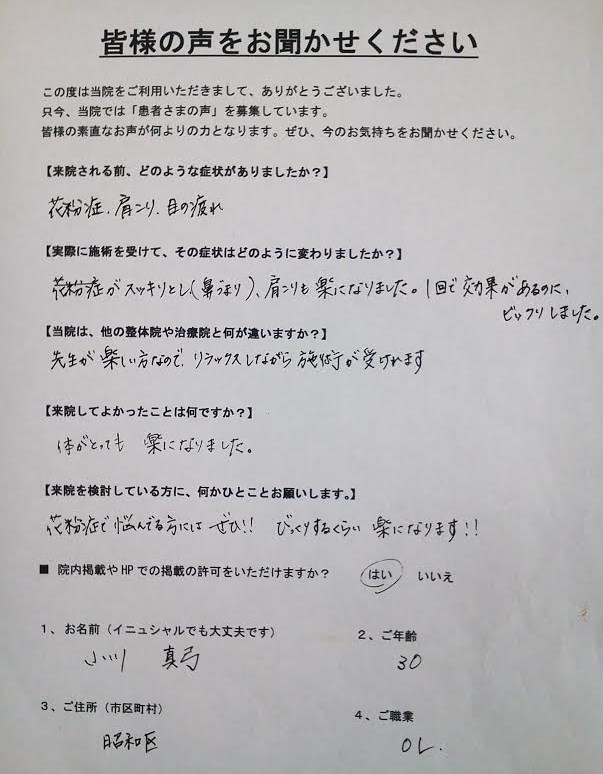 皆様の声をお聞かせください
この度は当院をご利用いただきまして、ありがとうございました。
只今、当院では「患者さまの声」を募集しています。
皆様の素直なお声が何よりの力となります。ぜひ、今のお気持ちをお聞かせください。
【来院される前、どのような症状がありましたか？】
花粉症、肩こり、目の疲れ
【実際に施術を受けて、その症状はどのように変わりましたか？】
花粉症がスッキリとし(鼻づまり)、肩こりも楽になりました。1回で効果があるのに、
ビックリしました。
【当院は、他の整体院や治療院と何が違いますか？】
先生が楽しい方なので、リラックスしながら施術が受けれます
【来院してよかったことは何ですか？】
体がとっても 楽になりました。
【来院を検討している方に、何かひとことお願いします。】
花粉症で悩んでる方には ぜひ!! びっくりするくらい 楽になります!!
■ 院内掲載やHPでの掲載の許可をいただけますか？ はい いいえ
1、お名前（イニュシャルでも大丈夫です） 2、ご年齢
小川 真弓 30
3、ご住所（市区町村） 4、ご職業
昭和区 OL.